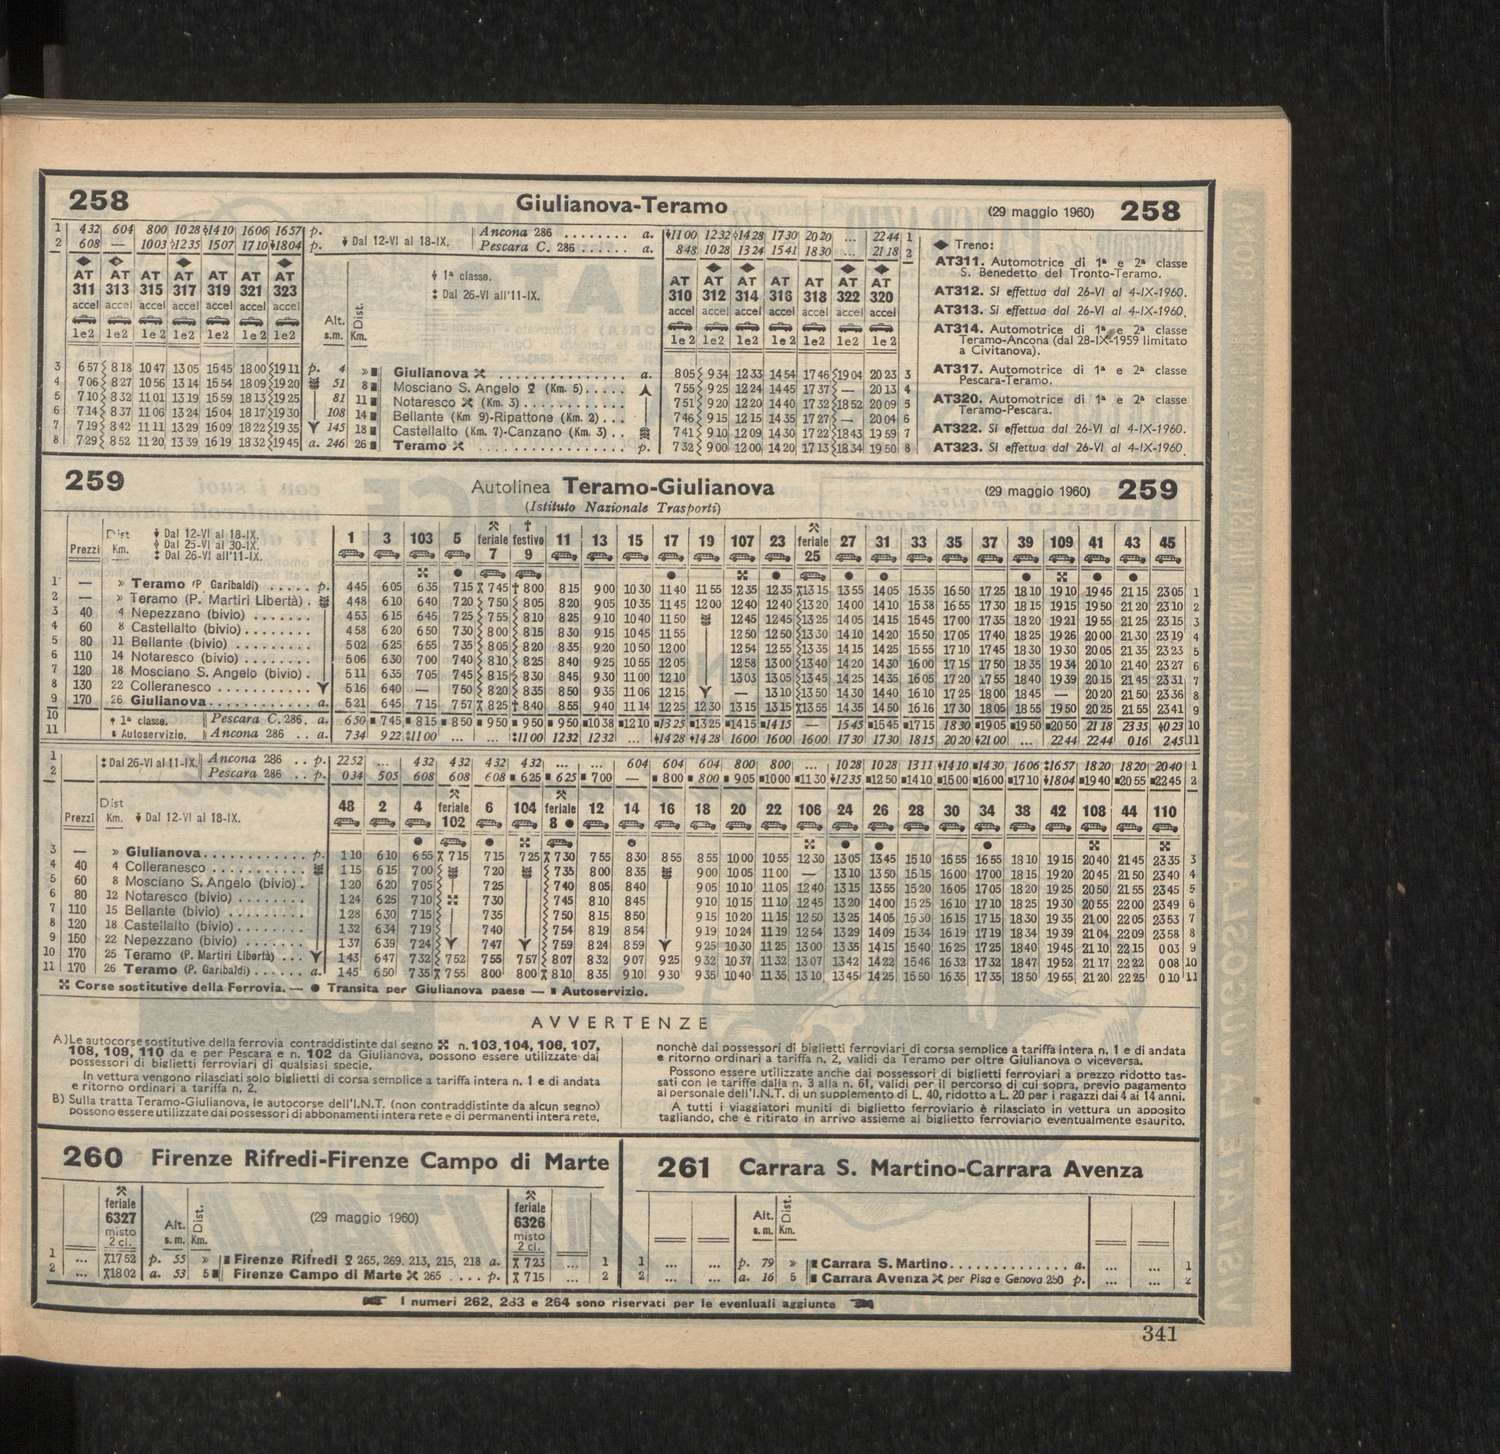 258 Giulianova-Teramo (29 maggio 1960) 258
1 432 604 800 1028 1410 1606 1657 p. Dal 12-VI al 18-IX. Ancona 286 ........ a. 1100 1232 1428 1730 2020 ... 2244 1
2 608 — 1003 1235 1507 1710 1804 p. Pescara C. 286 ...... a. 848 1028 1324 1541 1830 ... 2118 2
AT 311 AT 313 AT 315 AT 317 AT 319 AT 321 AT 323
accel accel accel accel accel accel accel
1e2 1e2 1e2 1e2 1e2 1e2 1e2
1ª classe.
Dal 26-VI all'11-IX.
Alt. s.m. Dist. Km.
AT 310 AT 312 AT 314 AT 316 AT 318 AT 322 AT 320
accel accel accel accel accel accel accel
1e2 1e2 1e2 1e2 1e2 1e2 1e2
3 657 818 1047 1305 1545 1800 1911 p. 4 » Giulianova ............... a. 805 934 1233 1454 1746 1904 2023 3
4 706 827 1056 1314 1554 1809 1920 51 8 Mosciano S. Angelo (Km. 5)..... 755 925 1224 1445 1737 — 2013 4
5 710 832 1101 1319 1559 1813 1925 81 11 Notaresco (Km. 3) ........... 751 920 1220 1440 1732 1852 2009 5
6 714 837 1106 1324 1604 1817 1930 108 14 Bellante (Km 9)-Ripattone (Km. 2)... 746 915 1215 1435 1727 — 2004 6
7 719 842 1111 1329 1609 1822 1935 145 18 Castellalto (Km. 7)-Canzano (Km. 3).. 741 910 1209 1430 1722 1843 1959 7
8 729 852 1120 1339 1619 1832 1945 a. 246 26 Teramo ................ p. 732 900 1200 1420 1713 1834 1950 8
Treno:
AT311. Automotrice di 1ª e 2ª classe
S. Benedetto del Tronto-Teramo.
AT312. Si effettua dal 26-VI al 4-IX-1960.
AT313. Si effettua dal 26-VI al 4-IX-1960.
AT314. Automotrice di 1ª e 2ª classe
Teramo-Ancona (dal 28-IX-1959 limitato
a Civitanova).
AT317. Automotrice di 1ª e 2ª classe
Pescara-Teramo.
AT320. Automotrice di 1ª e 2ª classe
Teramo-Pescara.
AT322. Si effettua dal 26-VI al 4-IX-1960.
AT323. Si effettua dal 26-VI al 4-IX-1960.
259 Autolinea Teramo-Giulianova (29 maggio 1960) 259
(Istituto Nazionale Trasporti)
Prezzi Dist Km. Dal 12-VI al 18-IX.
Dal 25-VI al 30-IX.
Dal 26-VI all'11-IX.
1 3 103 5 feriale 7 festivo 9 11 13 15 17 19 107 23 feriale 25 27 31 33 35 37 39 109 41 43 45
1 — » Teramo (P Garibaldi) ..... p. 445 605 635 715 745 800 815 900 1030 1140 1155 1235 1235 1315 1355 1405 1535 1650 1725 1810 1910 1945 2115 2305 1
2 — » Teramo (P. Martiri Libertà). 448 610 640 720 750 805 820 905 1035 1145 1200 1240 1240 1320 1400 1410 1538 1655 1730 1815 1915 1950 2120 2310 2
3 40 4 Nepezzano (bivio) ........ 453 615 645 725 755 810 825 910 1040 1150 1245 1245 1325 1405 1415 1545 1700 1735 1820 1921 1955 2125 2315 3
4 60 8 Castellalto (bivio)........ 458 620 650 730 800 815 830 915 1045 1155 1250 1250 1330 1410 1420 1550 1705 1740 1825 1926 2000 2130 2319 4
5 80 11 Bellante (bivio) ......... 502 625 655 735 805 820 835 920 1050 1200 1254 1255 1335 1415 1425 1555 1710 1745 1830 1930 2005 2135 2323 5
6 110 14 Notaresco (bivio) ........ 506 630 700 740 810 825 840 925 1055 1205 1258 1300 1340 1420 1430 1600 1715 1750 1835 1934 2010 2140 2327 6
7 120 18 Mosciano S. Angelo (bivio). 511 635 705 745 815 830 845 930 1100 1210 1303 1305 1345 1425 1435 1605 1720 1755 1840 1939 2015 2145 2331 7
8 130 22 Colleranesco ........... 516 640 — 750 820 835 850 935 1106 1215 — 1310 1350 1430 1440 1610 1725 1800 1845 — 2020 2150 2336 8
9 170 26 Giulianova............. a. 521 645 715 757 825 840 855 940 1114 1225 1230 1315 1315 1355 1435 1450 1616 1730 1805 1855 1950 2025 2155 2341 9
10 1ª classe. Pescara C.286. a. 650 745 815 850 950 950 950 1038 1210 1325 1325 1415 1415 — 1545 1545 1715 1830 1905 1950 2050 2118 2335 023 10
11 Autoservizio. Ancona 286 .. a. 734 922 1100 ... ... 1100 1232 1232 ... 1428 1428 1600 1600 1600 1730 1730 1815 2020 2100 ... 2244 2244 016 245 11
1 Dal 26-VI al 11-IX. Ancona 286 .. p. 2252 ... 432 432 432 432 432 ... 604 604 604 800 800 ... 1028 1028 1311 1410 1430 1606 1657 1820 1820 2040 1
2 Pescara 286 .. p. 034 505 608 608 608 625 625 700 — 800 800 905 1000 1130 1235 1250 1410 1600 1600 1710 1804 1940 2055 2245 2
Prezzi Dist Km. Dal 12-VI al 18-IX.
48 2 4 feriale 102 6 104 feriale 8 12 14 16 18 20 22 106 24 26 28 30 34 38 42 108 44 110
3 — » Giulianova............ p. 110 610 655 715 715 725 730 755 830 855 855 1000 1055 1230 1305 1345 1510 1655 1655 1810 1915 2040 2145 2335 3
4 40 4 Colleranesco ........... 115 615 700 720 735 800 835 900 1005 1100 — 1310 1350 1515 1600 1700 1815 1920 2045 2150 2340 4
5 60 8 Mosciano S. Angelo (bivio). 120 620 705 725 740 805 840 905 1010 1105 1240 1315 1355 1520 1605 1705 1820 1925 2050 2155 2345 5
6 80 12 Notaresco (bivio) ........ 124 625 710 730 745 810 845 910 1015 1110 1245 1320 1400 1525 1610 1710 1825 1930 2055 2200 2349 6
7 110 15 Bellante (bivio) ......... 128 630 715 735 750 815 850 915 1020 1115 1250 1325 1405 1530 1615 1715 1830 1935 2100 2205 2353 7
8 120 18 Castellalto (bivio)........ 132 634 719 740 754 819 854 919 1024 1119 1254 1329 1409 1534 1619 1719 1834 1939 2104 2209 2358 8
9 150 22 Nepezzano (bivio) ....... 137 639 724 747 759 824 859 925 1030 1125 1300 1335 1415 1540 1625 1725 1840 1945 2110 2215 003 9
10 170 25 Teramo (P. Martiri Libertà) ... 143 647 732 752 755 757 807 832 907 925 932 1037 1132 1307 1342 1422 1546 1632 1732 1847 1952 2117 2222 008 10
11 170 26 Teramo (P. Garibaldi)...... a. 145 650 735 755 800 800 810 835 910 930 935 1040 1135 1310 1345 1425 1550 1635 1735 1850 1955 2120 2225 010 11
Corse sostitutive della Ferrovia. — Transita per Giulianova paese — Autoservizio.
AVVERTENZE
A) Le autocorse sostitutive della ferrovia contraddistinte dal segno n. 103, 104, 106, 107,
108, 109, 110 da e per Pescara e n. 102 da Giulianova, possono essere utilizzate dai
possessori di biglietti ferroviari di qualsiasi specie.
In vettura vengono rilasciati solo biglietti di corsa semplice a tariffa intera n. 1 e di andata
e ritorno ordinari a tariffa n. 2.
B) Sulla tratta Teramo-Giulianova, le autocorse dell'I.N.T. (non contraddistinte da alcun segno)
possono essere utilizzate dai possessori di abbonamenti intera rete e di permanenti intera rete,
nonchè dai possessori di biglietti ferroviari di corsa semplice a tariffa intera n. 1 e di andata
e ritorno ordinari a tariffa n. 2, validi da Teramo per oltre Giulianova o viceversa.
Possono essere utilizzate anche dai possessori di biglietti ferroviari a prezzo ridotto tas-
sati con le tariffe dalla n. 3 alla n. 61, validi per il percorso di cui sopra, previo pagamento
al personale dell'I.N.T. di un supplemento di L. 40, ridotto a L. 20 per i ragazzi dai 4 ai 14 anni.
A tutti i viaggiatori muniti di biglietto ferroviario è rilasciato in vettura un apposito
tagliando, che è ritirato in arrivo assieme al biglietto ferroviario eventualmente esaurito.
260 Firenze Rifredi-Firenze Campo di Marte
feriale 6327 misto 2 cl. Alt. s. m. Dist. Km. (29 maggio 1960) feriale 6326 misto 2 cl.
1 ... 1752 p. 55 » Firenze Rifredi 265, 269, 213, 215, 218 a. 723 ... 1
2 ... 1802 a. 53 5 Firenze Campo di Marte 265 .... p. 715 ... 2
261 Carrara S. Martino-Carrara Avenza
Alt. s. m. Dist. Km.
1 ... ... p. 79 » Carrara S. Martino.............. a. ... ... 1
2 ... ... a. 16 5 Carrara Avenza per Pisa e Genova 250 p. ... ... 2
I numeri 262, 263 e 264 sono riservati per le eventuali aggiunte
341